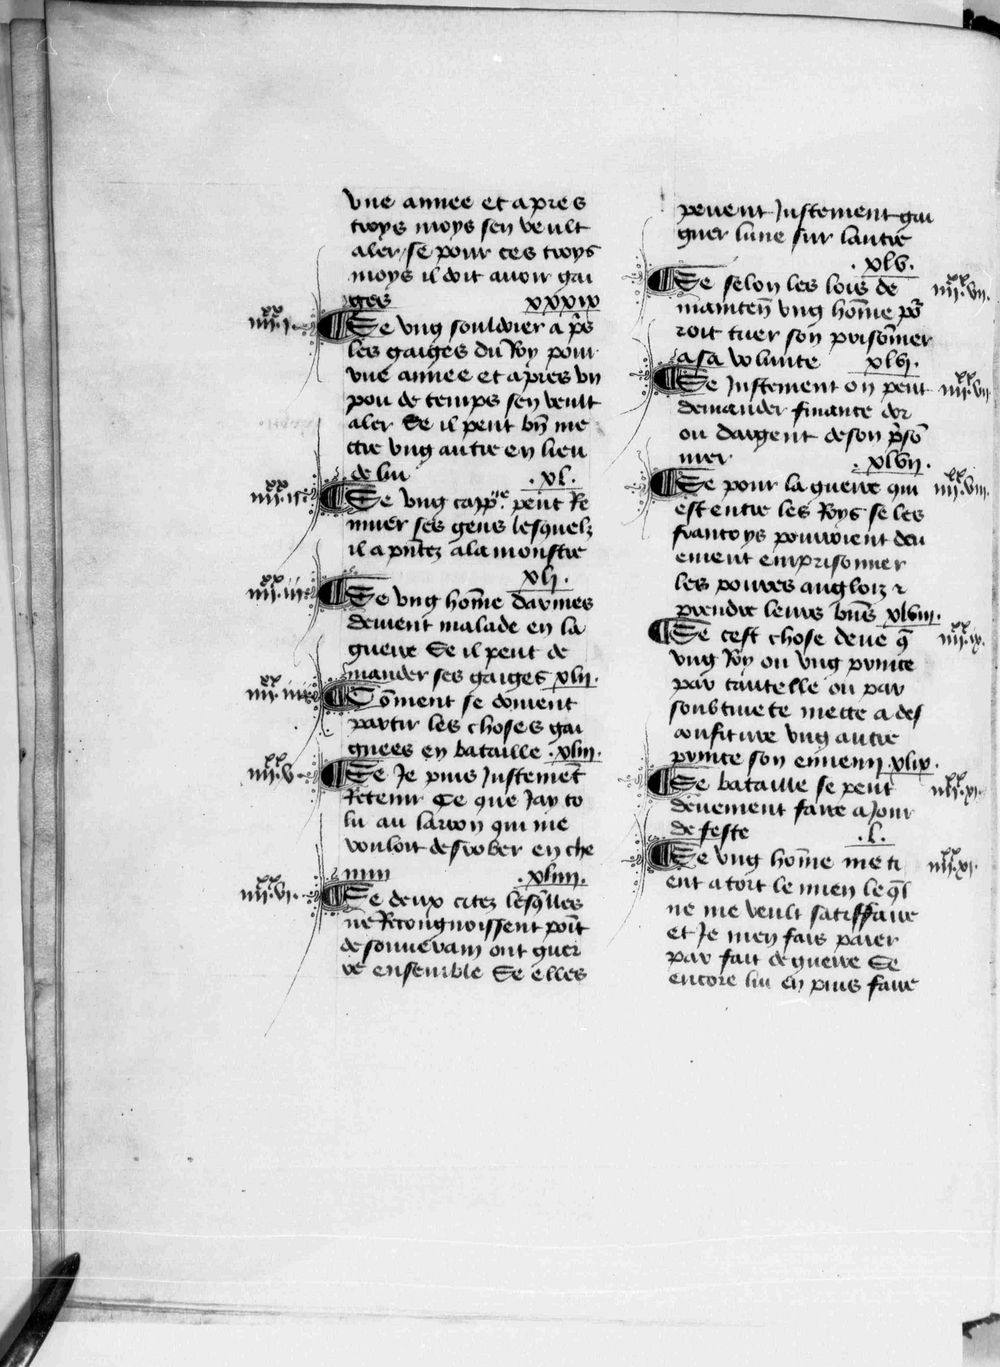 vne annee et apres
troys moys sen veult
aler / se pour ces troys
moys il doit auoir gai
ges xxxix
iiii.xx i. Se vng souldoier a pris
les gaiges du Roy pour
vne annee et apres vn
pou de temps sen veult
aler Se il peut bñ me
ctre vng autre en lieu
de lui .xl.
iiii.xx ii. Se vng capp.ne peut Re
muer ses gens lesquelz
il a pñtez a la monstre
.xli.
iiii.xx iii. Se vng hom̃e darmes
deuient malade en la
guerre Se il peut de
mander ses gaiges xlii.
iiii.xx iiii. Com̃ent se doiuent
partir les choses gai
gnees en bataille .xliii.
iiii.xx v. Se Je puis Justemẽt
Retenir Ce que Jay to
lu au larron qui me
vouloit desrober en che
min .xliiii.
iiii.xx vi. Se deux citez lesq̃lles
ne Recongnoissent point
de souuerain ont guer
re ensemble Se elles
peuent Justement gai
gner lune sur lautre
.xlv.
iiii.xx vii. Se selon les lois de
mainteñ vng hom̃e põ
roit tuer son prisoñier
a sa volunte xlvi.
iiii.xx vii Se Justement on peut
demander finance dor
ou dargent de son p̃sõ
nier .xlvii.
iiii.xx viii. Se pour la guerre qui
est entre les Roys se les
francoys pourroient deu
ement emprisonner
les poures angloiz ⁊
prendre leurs biẽs xlviii.
iiii.xx ix. Se cest chose deue q̃
vng Roy ou vng prince
par cautelle ou par
soubtiuete mecte a des
confiture vng autre
prince son ennemi .xlix.
iiii.xx xi. Se bataille se peut
deuement faire a Jour
de feste .l.
iiii.xx xi. Se vng hom̃e me ti
ent a tort le mien leq̃l
ne me veult satiffaire
et Je men fais paier
par fait de guerre Se
encore lui en puis faire